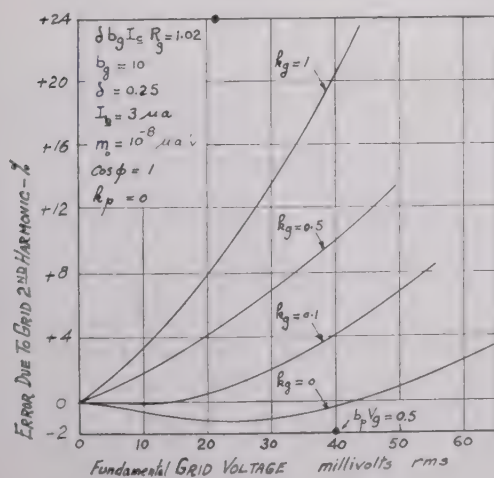 +24
+20
+16
+12
+8
+4
0
-2
ERROR DUE TO GRID 2ND HARMONIC-%
δ bg Ic Rg = 1.02
bg = 10
δ = 0.25
= 3 μa
= 10⁻⁸ μa
cos φ = 1
kp = 0
kg = 1
kg = 0.5
kg = 0.1
kg = 0
bp Vg = 0.5
0 10 20 30 40 50 60
Fundamental GRID VOLTAGE millivolts rms